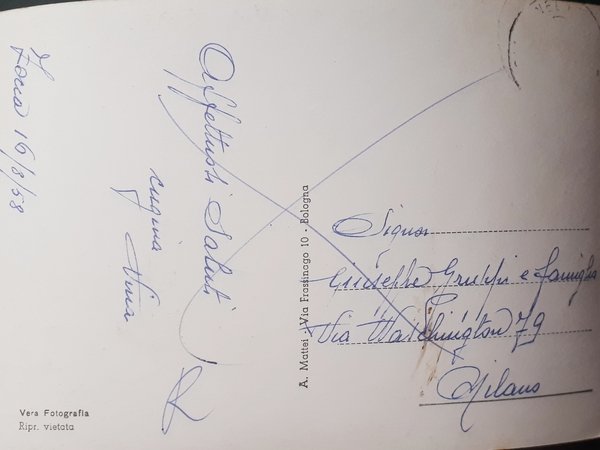 Zocca 16/8/58
Affettuosi Saluti
cugina
Vera Fotografia
Ripr. vietata
A. Mattei - Via Frassinago 10 - Bologna
Signor
Giuseppe Gruppi e famiglia
Via Washington 79
Milano